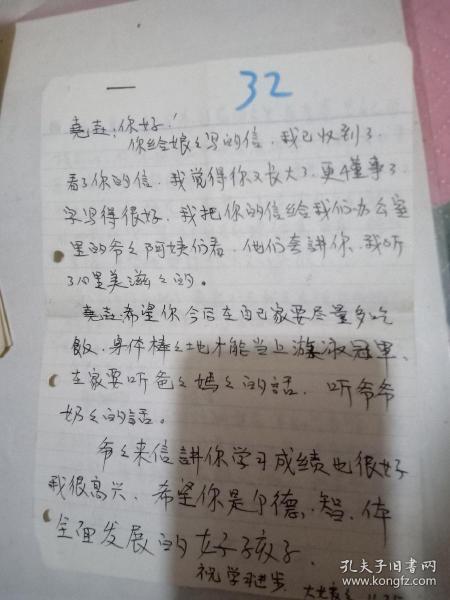 32
尭喆：你好！
你给娘々写的信，我已收到了，
看了你的信，我觉得你又长大了，更懂事了，
字写得很好，我把你的信给我们办公室
里的爷々阿姨们看，他们夸講你，我听
了心里美滋々的。
尭喆希望你今后在自己家要尽量多吃
飯，身体棒々地才能当上游泳冠軍，
在家要听爸々媽々的話，听爷爷
奶々的話。
爷々来信講你学习成绩也很好
我很高兴，希望你是个德，智，体
全面发展的好孩子，
祝学习进步
孔夫子旧书网